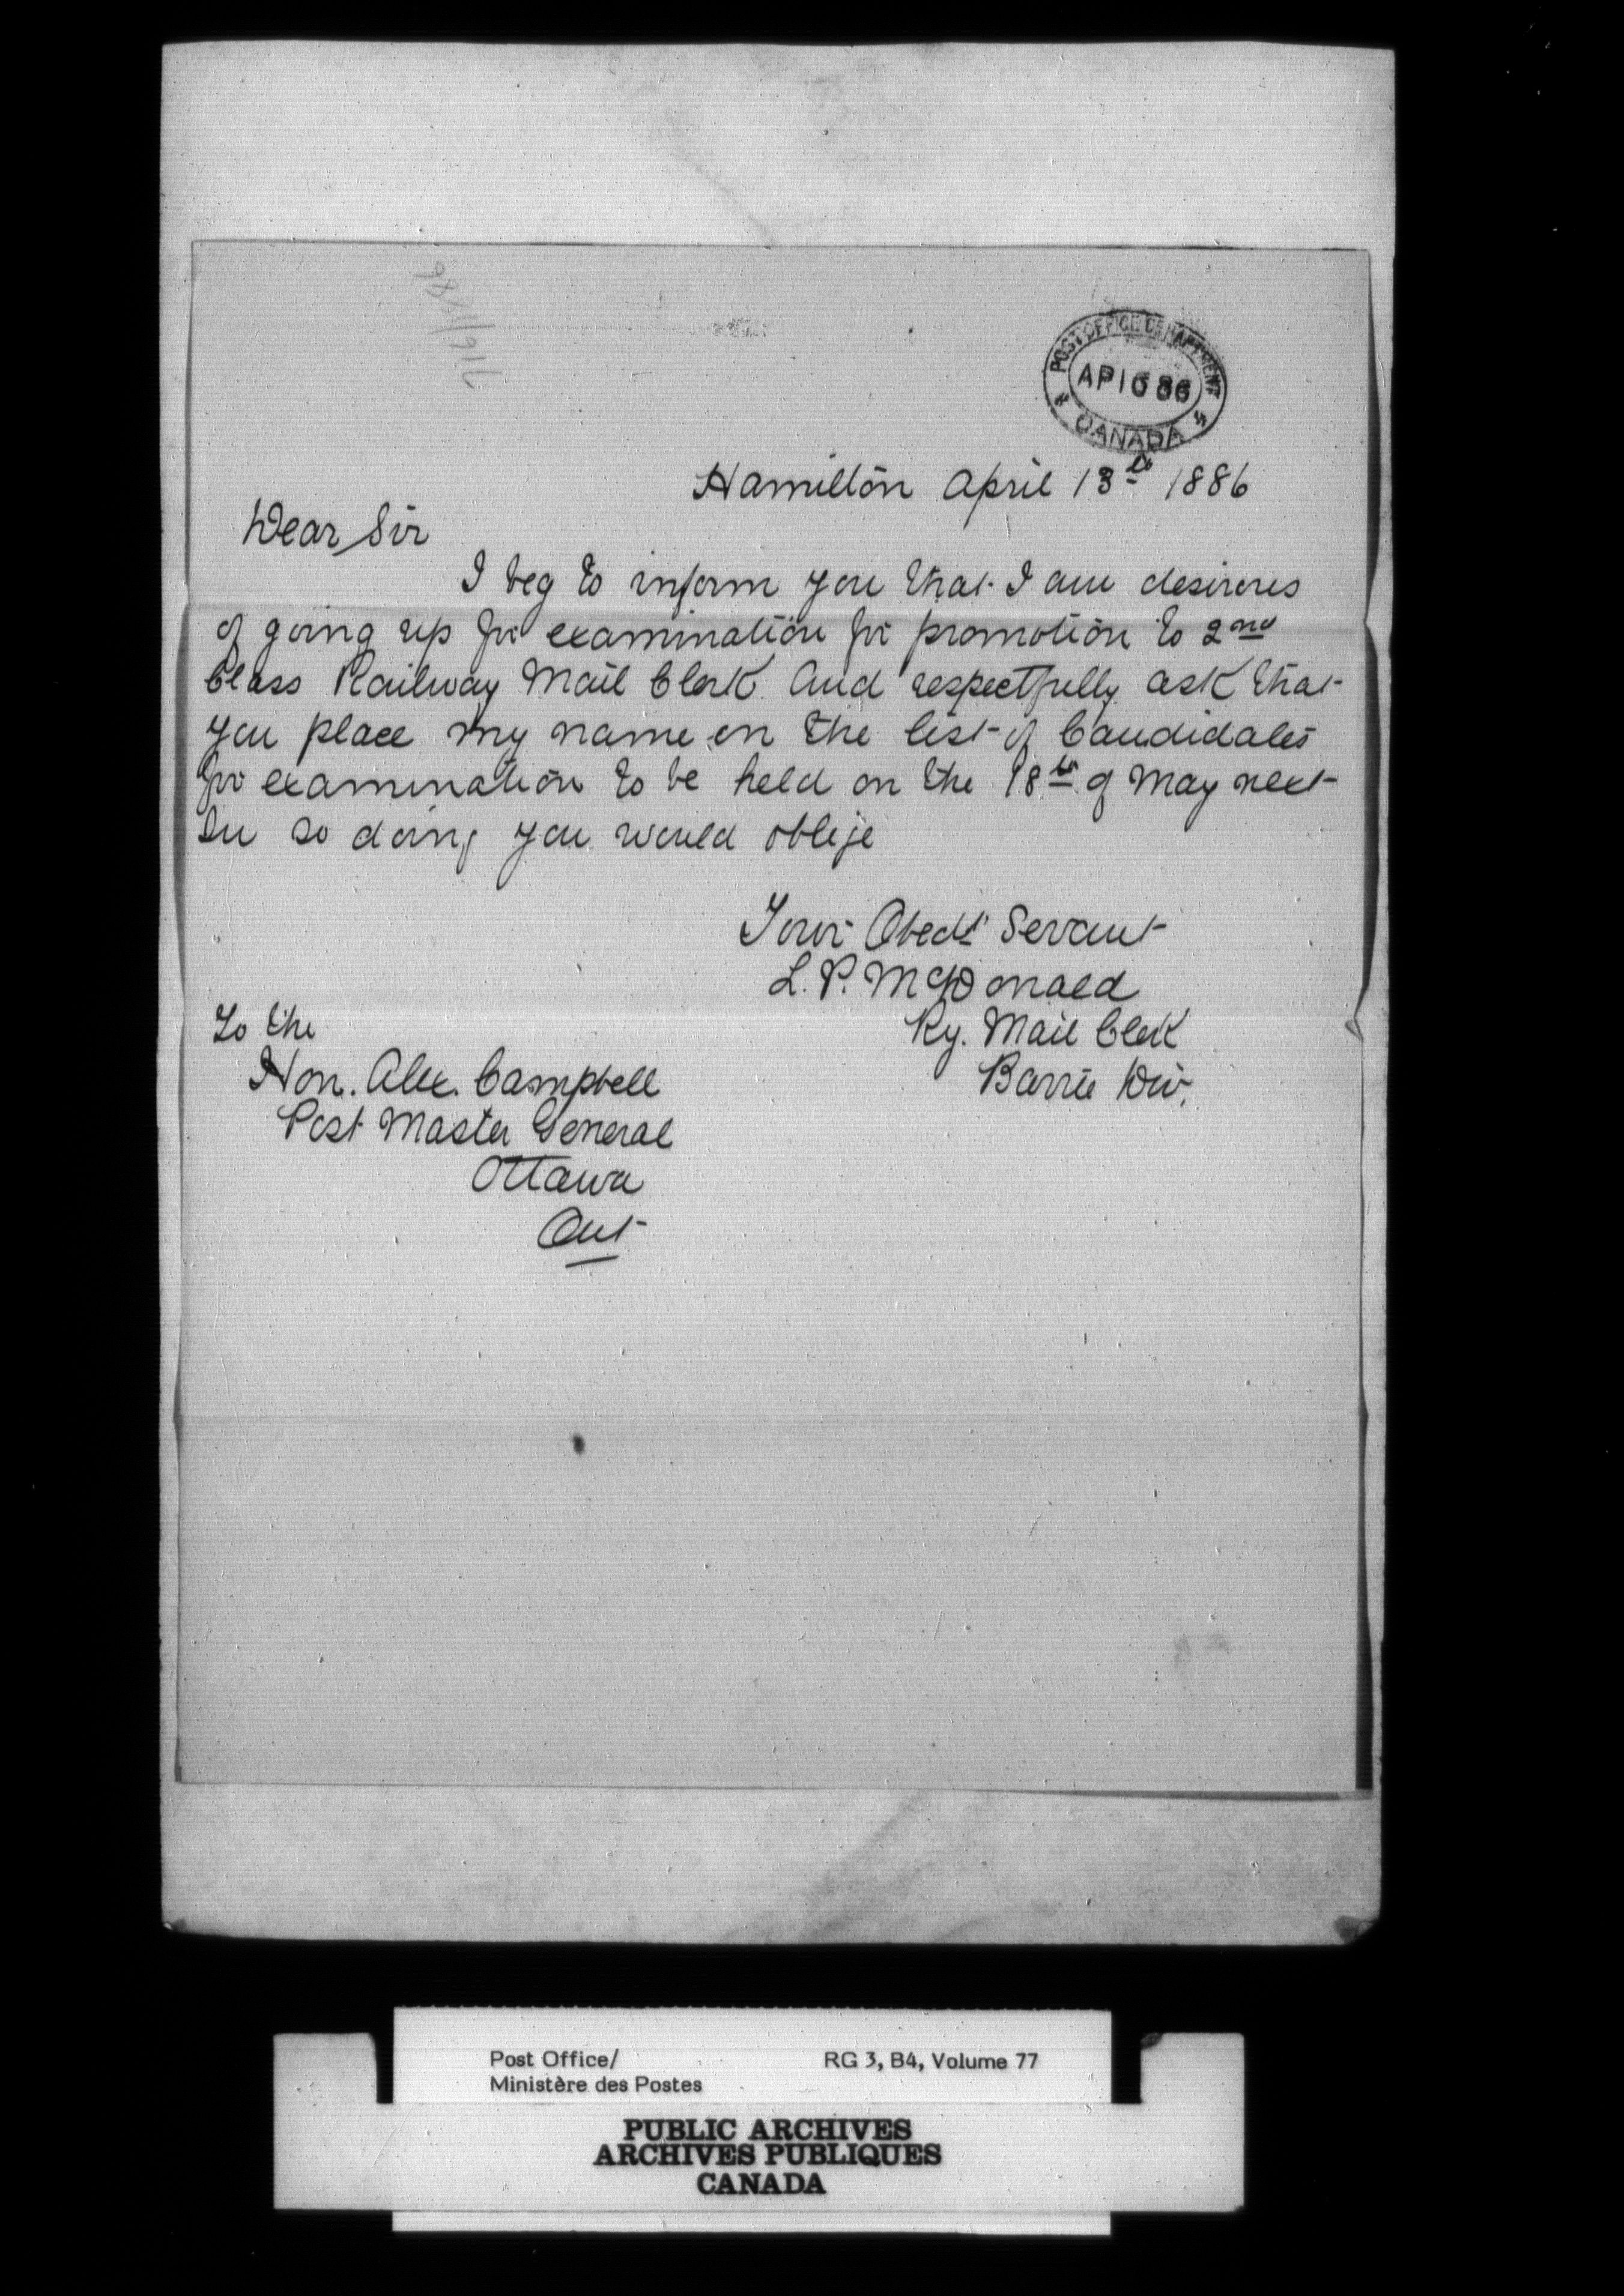 POST OFFICE DEPARTMENT
CANADA
Hamilton April 13th 1886
Dear Sir
I beg to inform you that I am desirous
of going up for examination for promotion to 2nd
Class Railway Mail Clerk. And respectfully ask that
you place my name on the list of Candidates
for examination to be held on the 18th of May next
In so doing you would oblije
Your Obedt Servant
L. P. McDonald
Ry. Mail Clerk
Barrie Div.
To the
Hon. Alex. Campbell
Post Master General
Ottawa
Ont
Post Office/
Ministère des Postes
RG 3, B4, Volume 77
PUBLIC ARCHIVES
ARCHIVES PUBLIQUES
CANADA